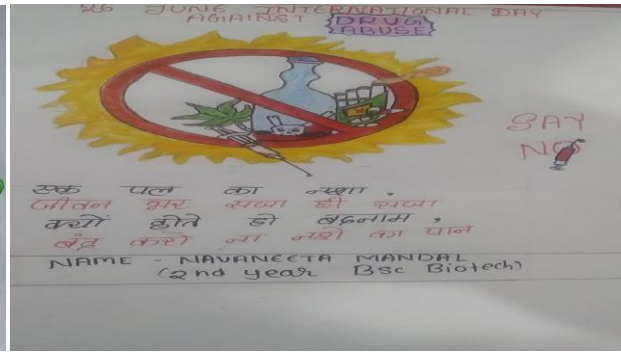 26 JUNE INTERNATIONAL DAY
AGAINST DRUG
ABUSE
SAY
NO
एक पल का नशा,
जीवन भर सजा ही सजा
क्यों होते हो बदनाम,
बंद करो ना नशे का पान
NAME - NAVANEETA MANDAL
(2nd year Bsc Biotech)